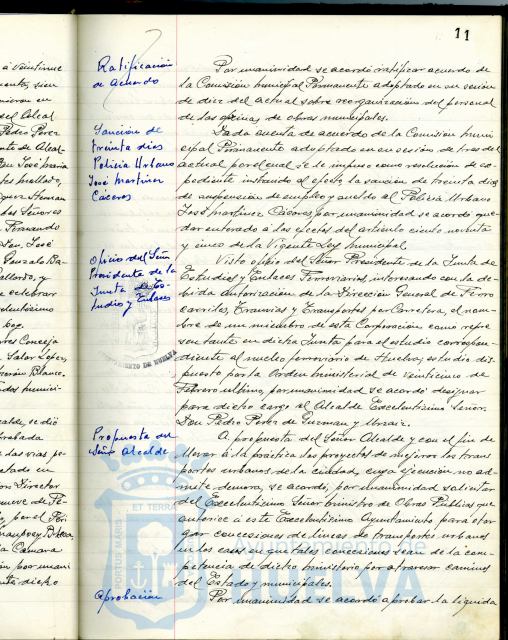 11
Ratificación
de acuerdo
Por unanimidad se acordó ratificar acuerdo de
la Comisión municipal Permanente adoptado en su sesión
de diez del actual sobre reorganización del personal
de las oficinas de obras municipales.
Sanción de
treinta dias
Policia Urbano
José Martinez
Cáceres
Dada cuenta de acuerdo de la Comisión muni
cipal Permanente adoptado en su sesión de tres del
actual por el cual se le impuso como resolución de ex-
pediente instruido al efecto la sanción de treinta dias
de suspensión de empleo y sueldo al Policia Urbano
José Martinez Cáceres por unanimidad se acordó que
dar enterado a los efectos del artículo ciento noventa
y cinco de la Vigente Ley municipal.
Oficio del Señor
Presidente de la
Junta de Es-
tudio y Enlaces
Visto oficio del Señor Presidente de la Junta de
Estudios y Enlaces Ferroviarios, interesando con la de-
bida autorización de la Dirección General de Ferro
carriles, Tranvias y Transportes por Carretera, el nom-
bre de un miembro de esta Corporación como repre
sentante en dicha Junta para el estudio correspon-
diente al nucleo ferroviario de Huelva, estudio dis-
puesto por la Orden ministerial de veinticinco de
Febrero ultimo, por unanimidad se acordó designar
para dicho cargo al Alcalde Excelentísimo Señor
Don Pedro Perez de Guzman y Urzaiz.
Propuesta del
Señor Alcalde
A propuesta del Señor Alcalde y con el fin de
llevar á la práctica los proyectos de mejoras los trans
portes urbanos de la ciudad, cuya ejecución no ad-
mite demora, se acordó, por unanimidad solicitar
del Excelentísimo Señor ministro de Obras Publicas que
autorice á este Excelentísimo Ayuntamiento para otor
gar concesiones de lineas de transportes urbanos
en los casos en que tales concesiones sean de la com-
petencia de dicho ministerio por atravesar caminos
del Estado y municipales.
Aprobación
Por unanimidad se acordó aprobar la liquida
AYUNTAMIENTO DE HUELVA
ET TERRA
PORTUS MARIS
Ayuntamiento de
HUELVA